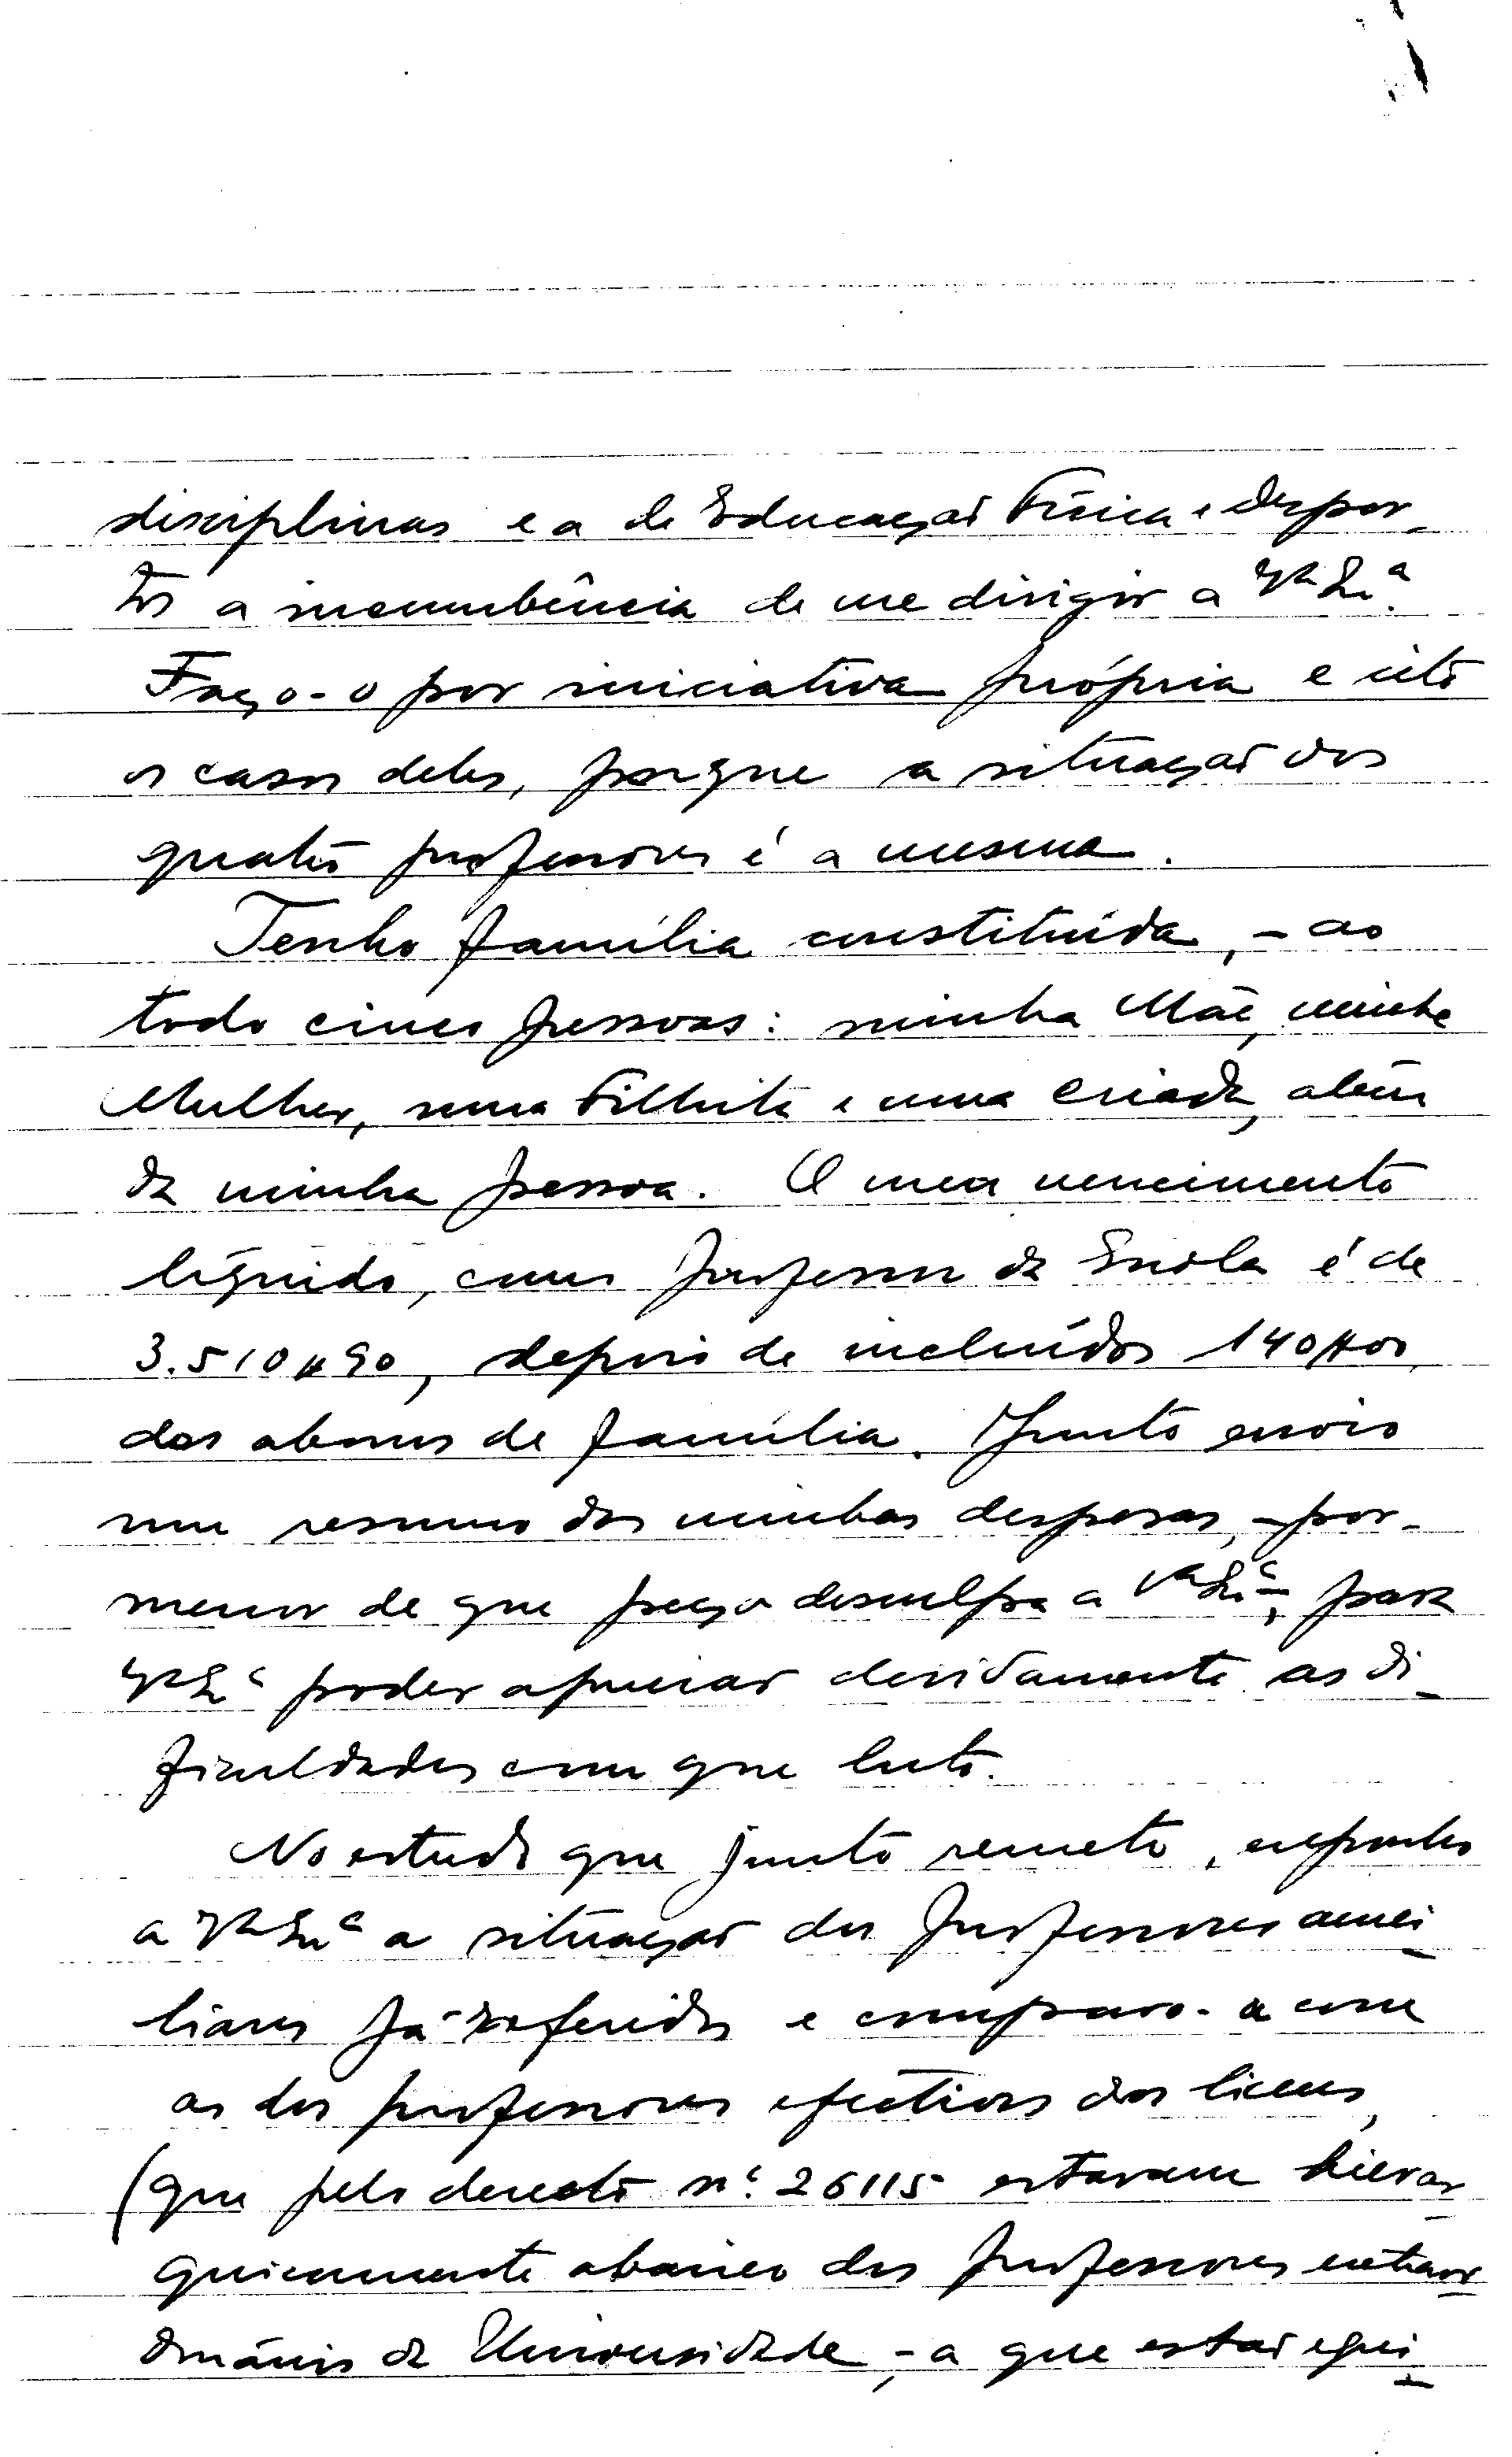 disciplinas e a de Educação Física e Despor-
tos a incumbência de me dirigir a Vª Exª.
Faço-o por iniciativa própria e cito
os casos deles, porque a situação dos
quatro professores é a mesma.
Tenho família constituída, - ao
todo cinco pessoas: minha Mãe, minha
Mulher, uma Filhita e uma criada, além
da minha pessoa. O meu vencimento
líquido, como professor da Escola é de
3.510$90, depois de incluídos 140$00
dos abonos de família. Junto envio
um resumo das minhas despesas, - por-
menor de que peço desculpa a Vª Exª -, para
Vª Exª poder apreciar devidamente as di-
ficuldades com que luto.
No estudo que junto remeto, exponho
a Vª Exª a situação dos Professores auxi-
liares já referidos e comparo-a com
as dos professores efectivos dos liceus,
(que pelo decreto nº. 26115 estavam hierar-
quicamente abaixo dos Professores extraor-
dinários da Universidade, - a que estão equi-